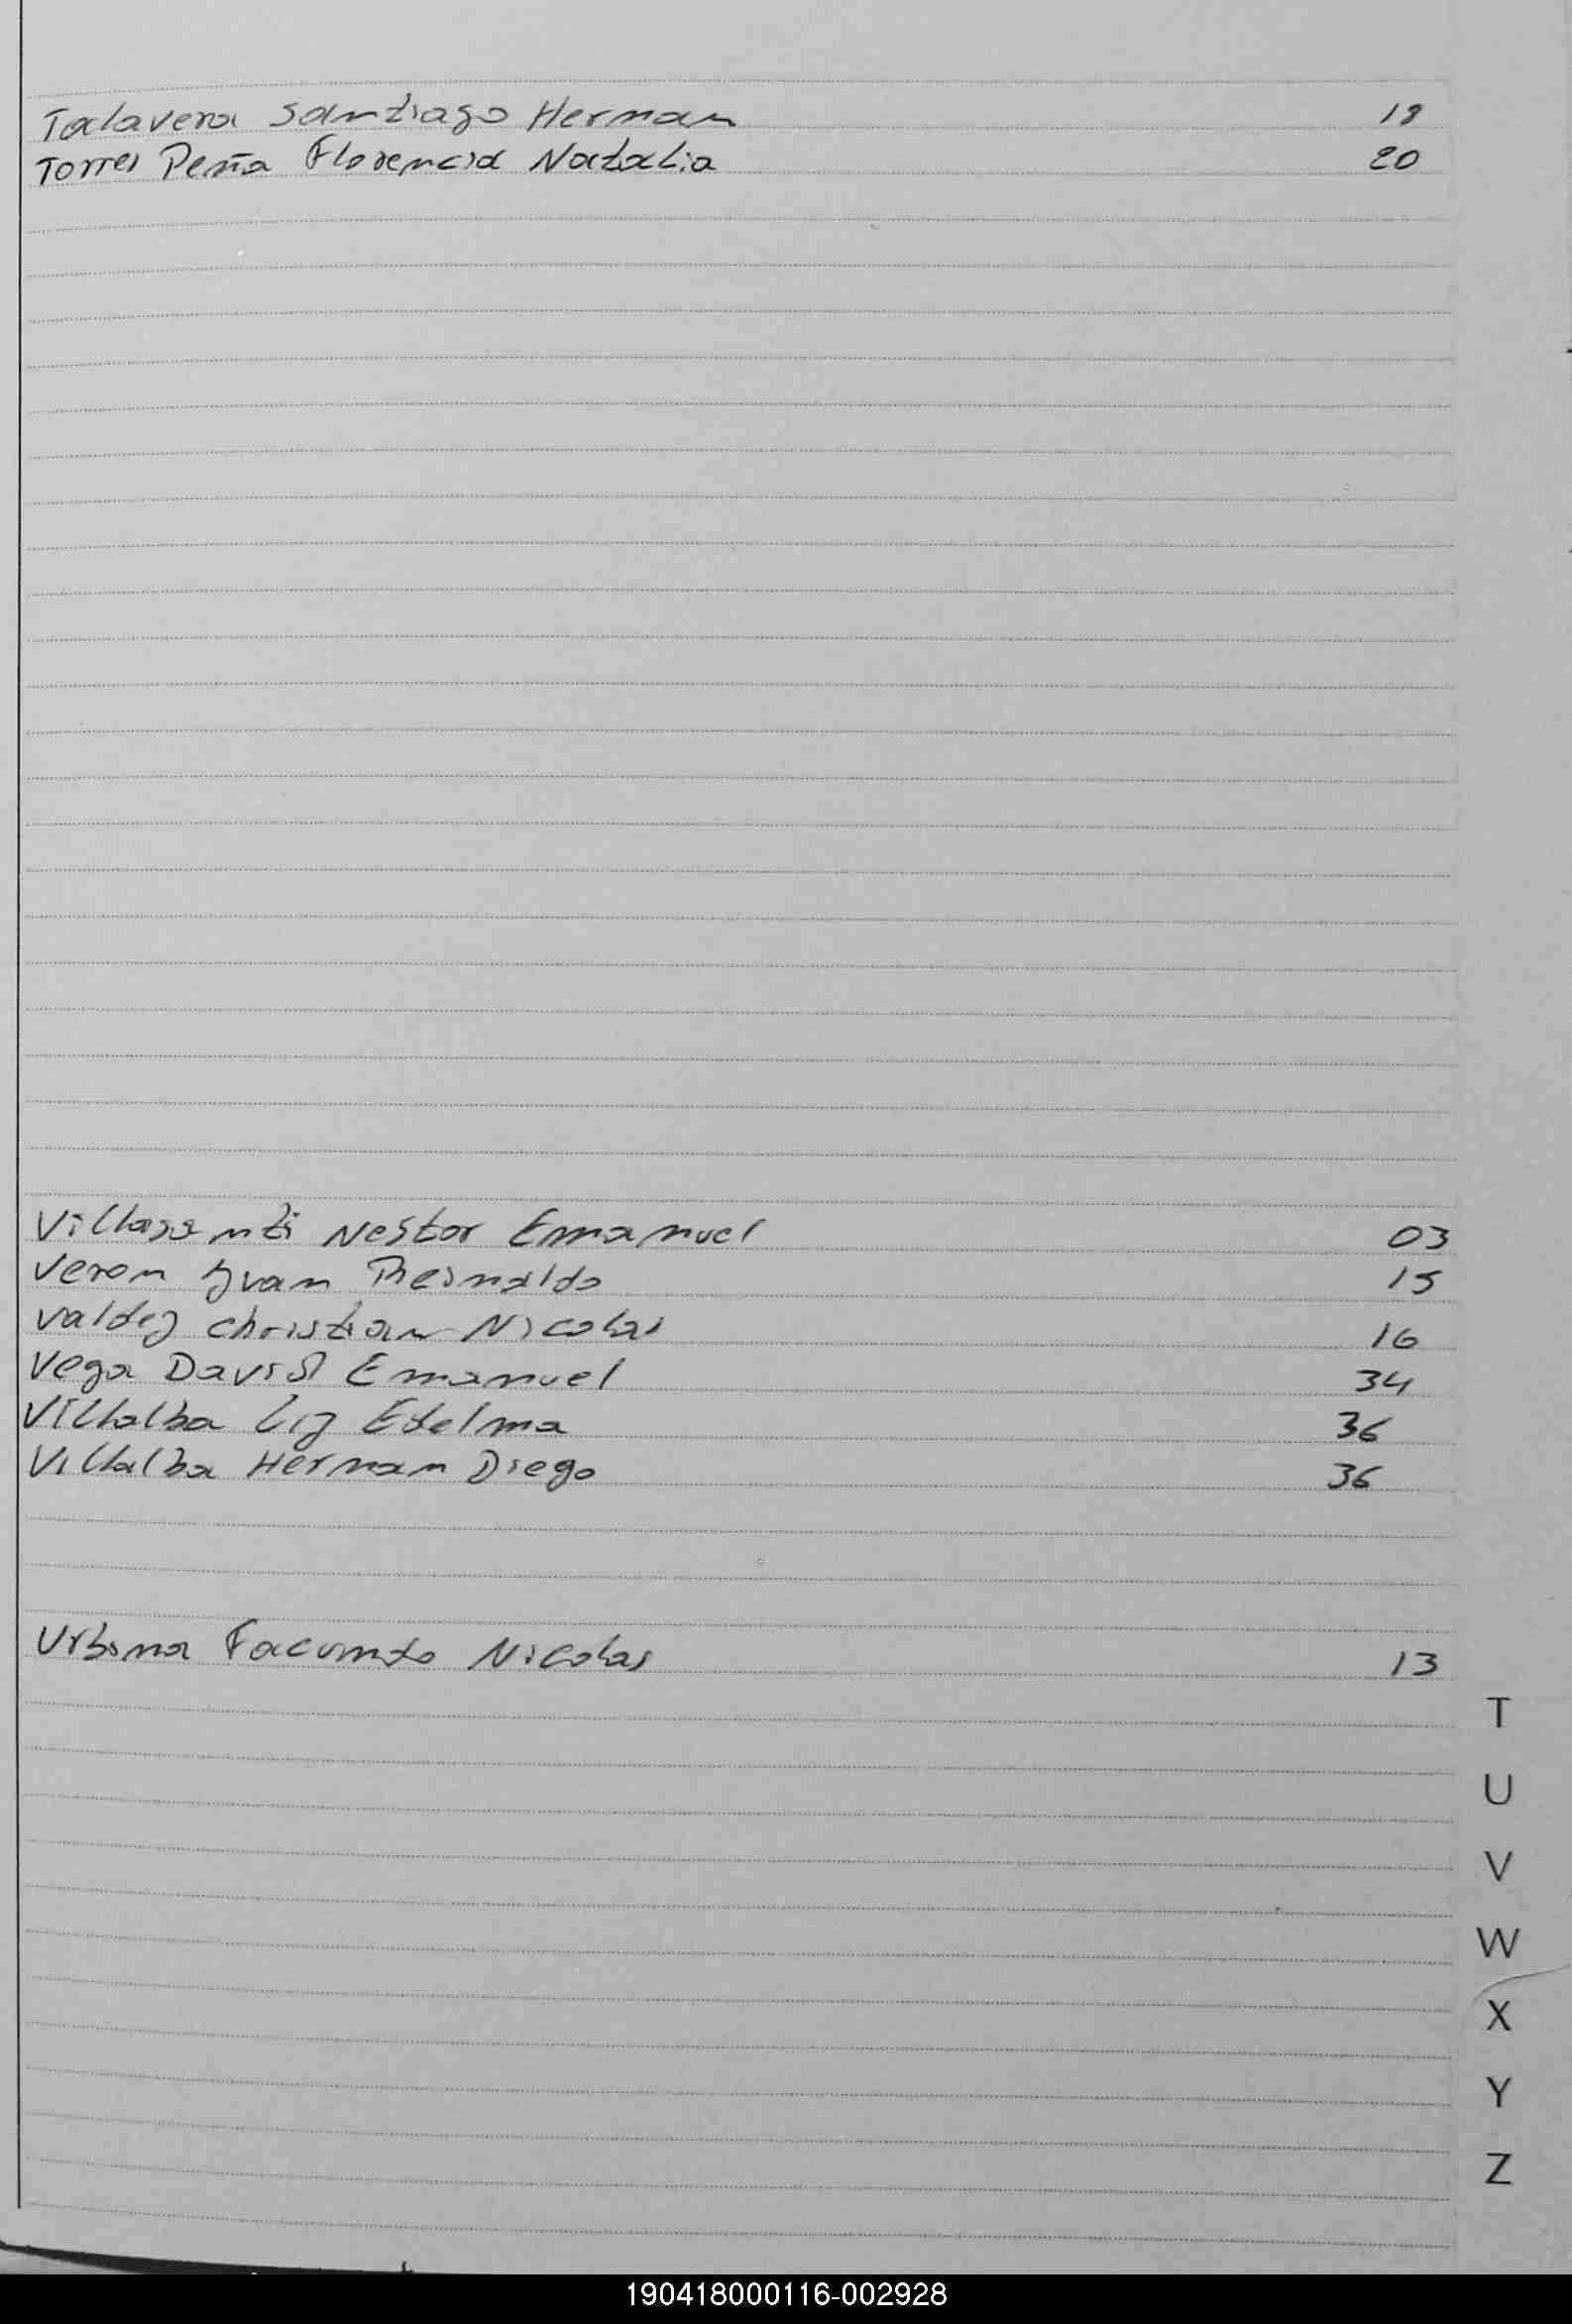 Talavera Santiago Hernan 18
Torres Peña Florencia Natalia 20
Villasanti Nestor Emmanuel 03
Veron Ivan Reinaldo 15
Valdez Christian Nicolas 16
Vega David Emanuel 34
Villalba Liz Edelma 36
Villalba Hernan Diego 36
Urbina Facundo Nicolas 13
T
U
V
W
X
Y
Z
190418000116-002928